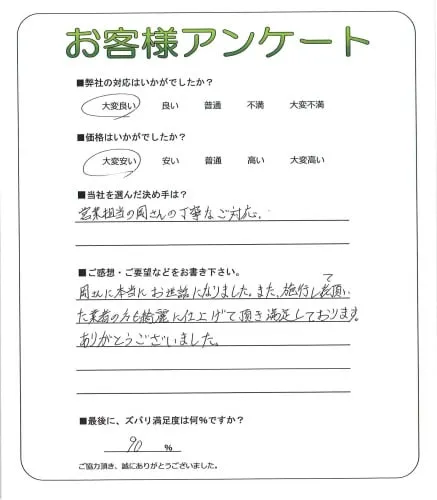 お客様アンケート
■弊社の対応はいかがでしたか？
大変良い 良い 普通 不満 大変不満
■価格はいかがでしたか？
大変安い 安い 普通 高い 大変高い
■当社を選んだ決め手は？
営業担当の岡さんの丁寧なご対応.
■ご感想・ご要望などをお書き下さい。
岡さんに本当にお世話になりました。また、施行して頂い
た業者の方も綺麗に仕上げて頂き満足しております。
ありがとうございました。
■最後に、ズバリ満足度は何％ですか？
90 ％
ご協力頂き、誠にありがとうございました。